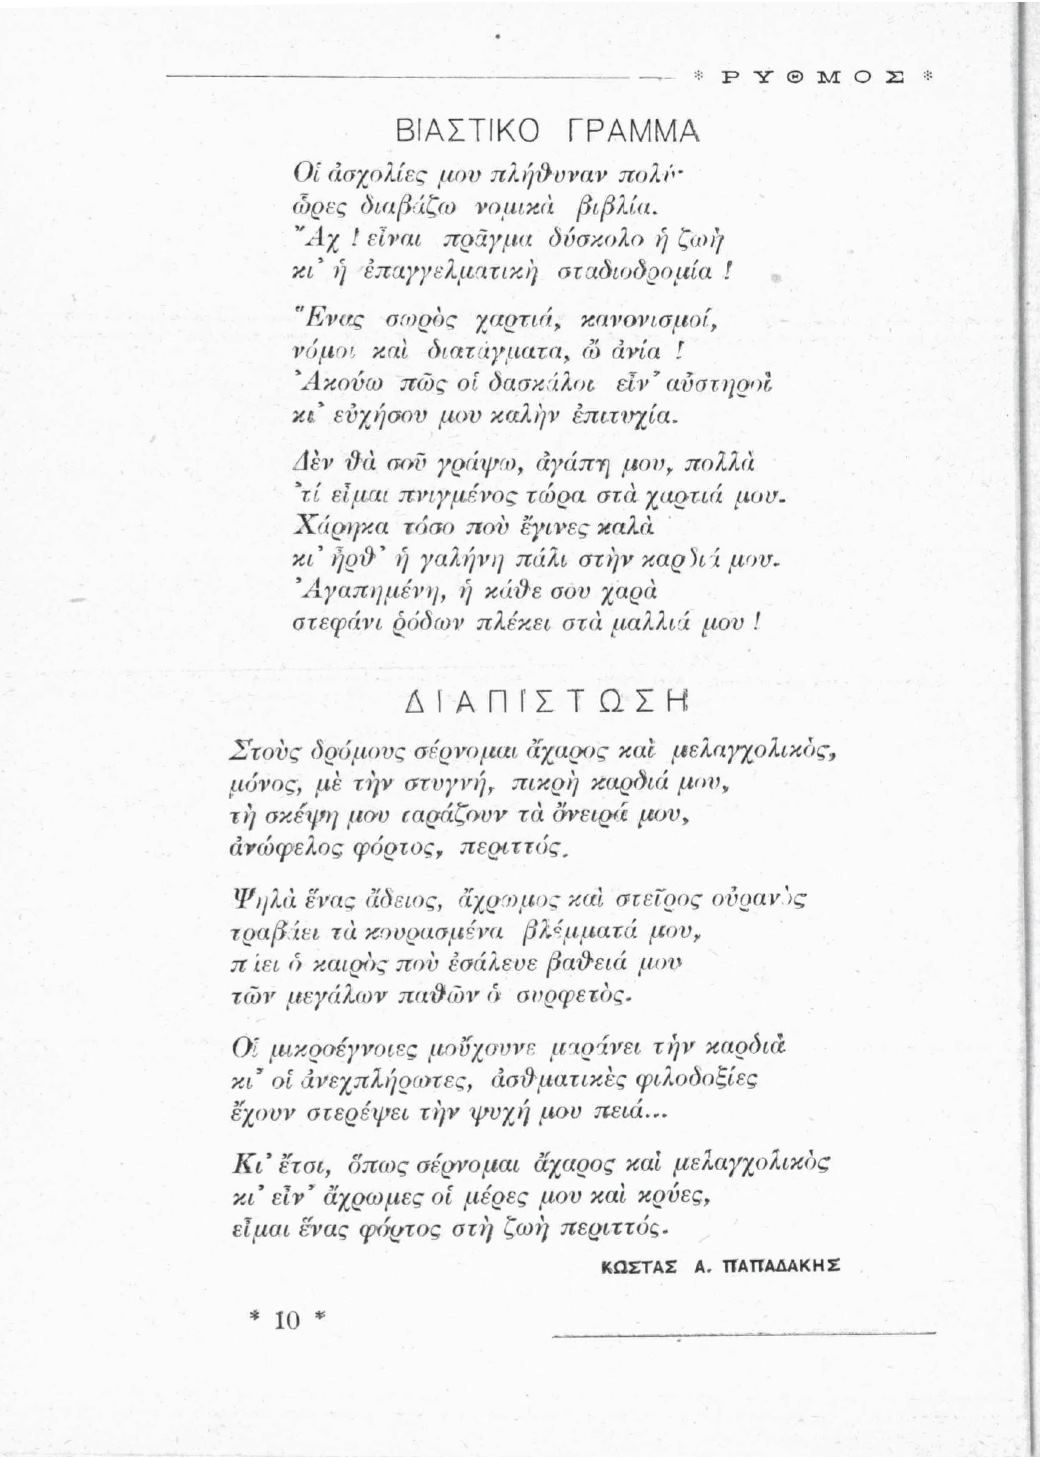 * ΡΥΘΜΟΣ *
ΒΙΑΣΤΙΚΟ ΓΡΑΜΜΑ
Οἱ ἀσχολίες μου πλήθυναν πολύ·
ὧρες διαβάζω νομικὰ βιβλία.
Ἄχ ! εἶναι πρᾶγμα δύσκολο ἡ ζωὴ
κι᾽ ἡ ἐπαγγελματικὴ σταδιοδρομία !
Ἕνας σωρὸς χαρτιά, κανονισμοί,
νόμοι καὶ διατάγματα, ὤ ἀνία !
Ἀκούω πῶς οἱ δασκάλοι εἶν᾽ αὐστηροὶ
κι᾽ εὐχήσου μου καλὴν ἐπιτυχία.
Δὲν θὰ σοῦ γράψω, ἀγάπη μου, πολλὰ
᾽τί εἶμαι πνιγμένος τώρα στὰ χαρτιά μου.
Χάρηκα τόσο ποὺ ἔγινες καλὰ
κι᾽ ἦρθ᾽ ἡ γαλήνη πάλι στὴν καρδιά μου.
Ἀγαπημένη, ἡ κάθε σου χαρὰ
στεφάνι ῥόδων πλέκει στὰ μαλλιά μου !
ΔΙΑΠΙΣΤΩΣΗ
Στοὺς δρόμους σέρνομαι ἄχαρος καὶ μελαγχολικὸς,
μόνος, μὲ τὴν στυγνή, πικρὴ καρδιά μου,
τὴ σκέψη μου ταράζουν τὰ ὄνειρά μου,
ἀνώφελος φόρτος, περιττός.
Ψηλὰ ἕνας ἄδειος, ἄχρωμος καὶ στεῖρος οὐρανὸς
τραβάει τὰ κουρασμένα βλέμματά μου,
πάει ὁ καιρὸς ποὺ ἐσάλευε βαθειά μου
τῶν μεγάλων παθῶν ὁ συρφετὸς.
Οἱ μικροέγνοιες μοὔχουνε μαράνει τὴν καρδιὰ
κι᾽ οἱ ἀνεχπλήρωτες, ἀσθματικὲς φιλοδοξίες
ἔχουν στερέψει τὴν ψυχή μου πειά...
Κι᾽ ἔτσι, ὅπως σέρνομαι ἄχαρος καὶ μελαγχολικὸς
κι᾽ εἶν᾽ ἄχρωμες οἱ μέρες μου καὶ κρύες,
εἶμαι ἕνας φόρτος στὴ ζωὴ περιττός.
ΚΩΣΤΑΣ Α. ΠΑΠΑΔΑΚΗΣ
* 10 *